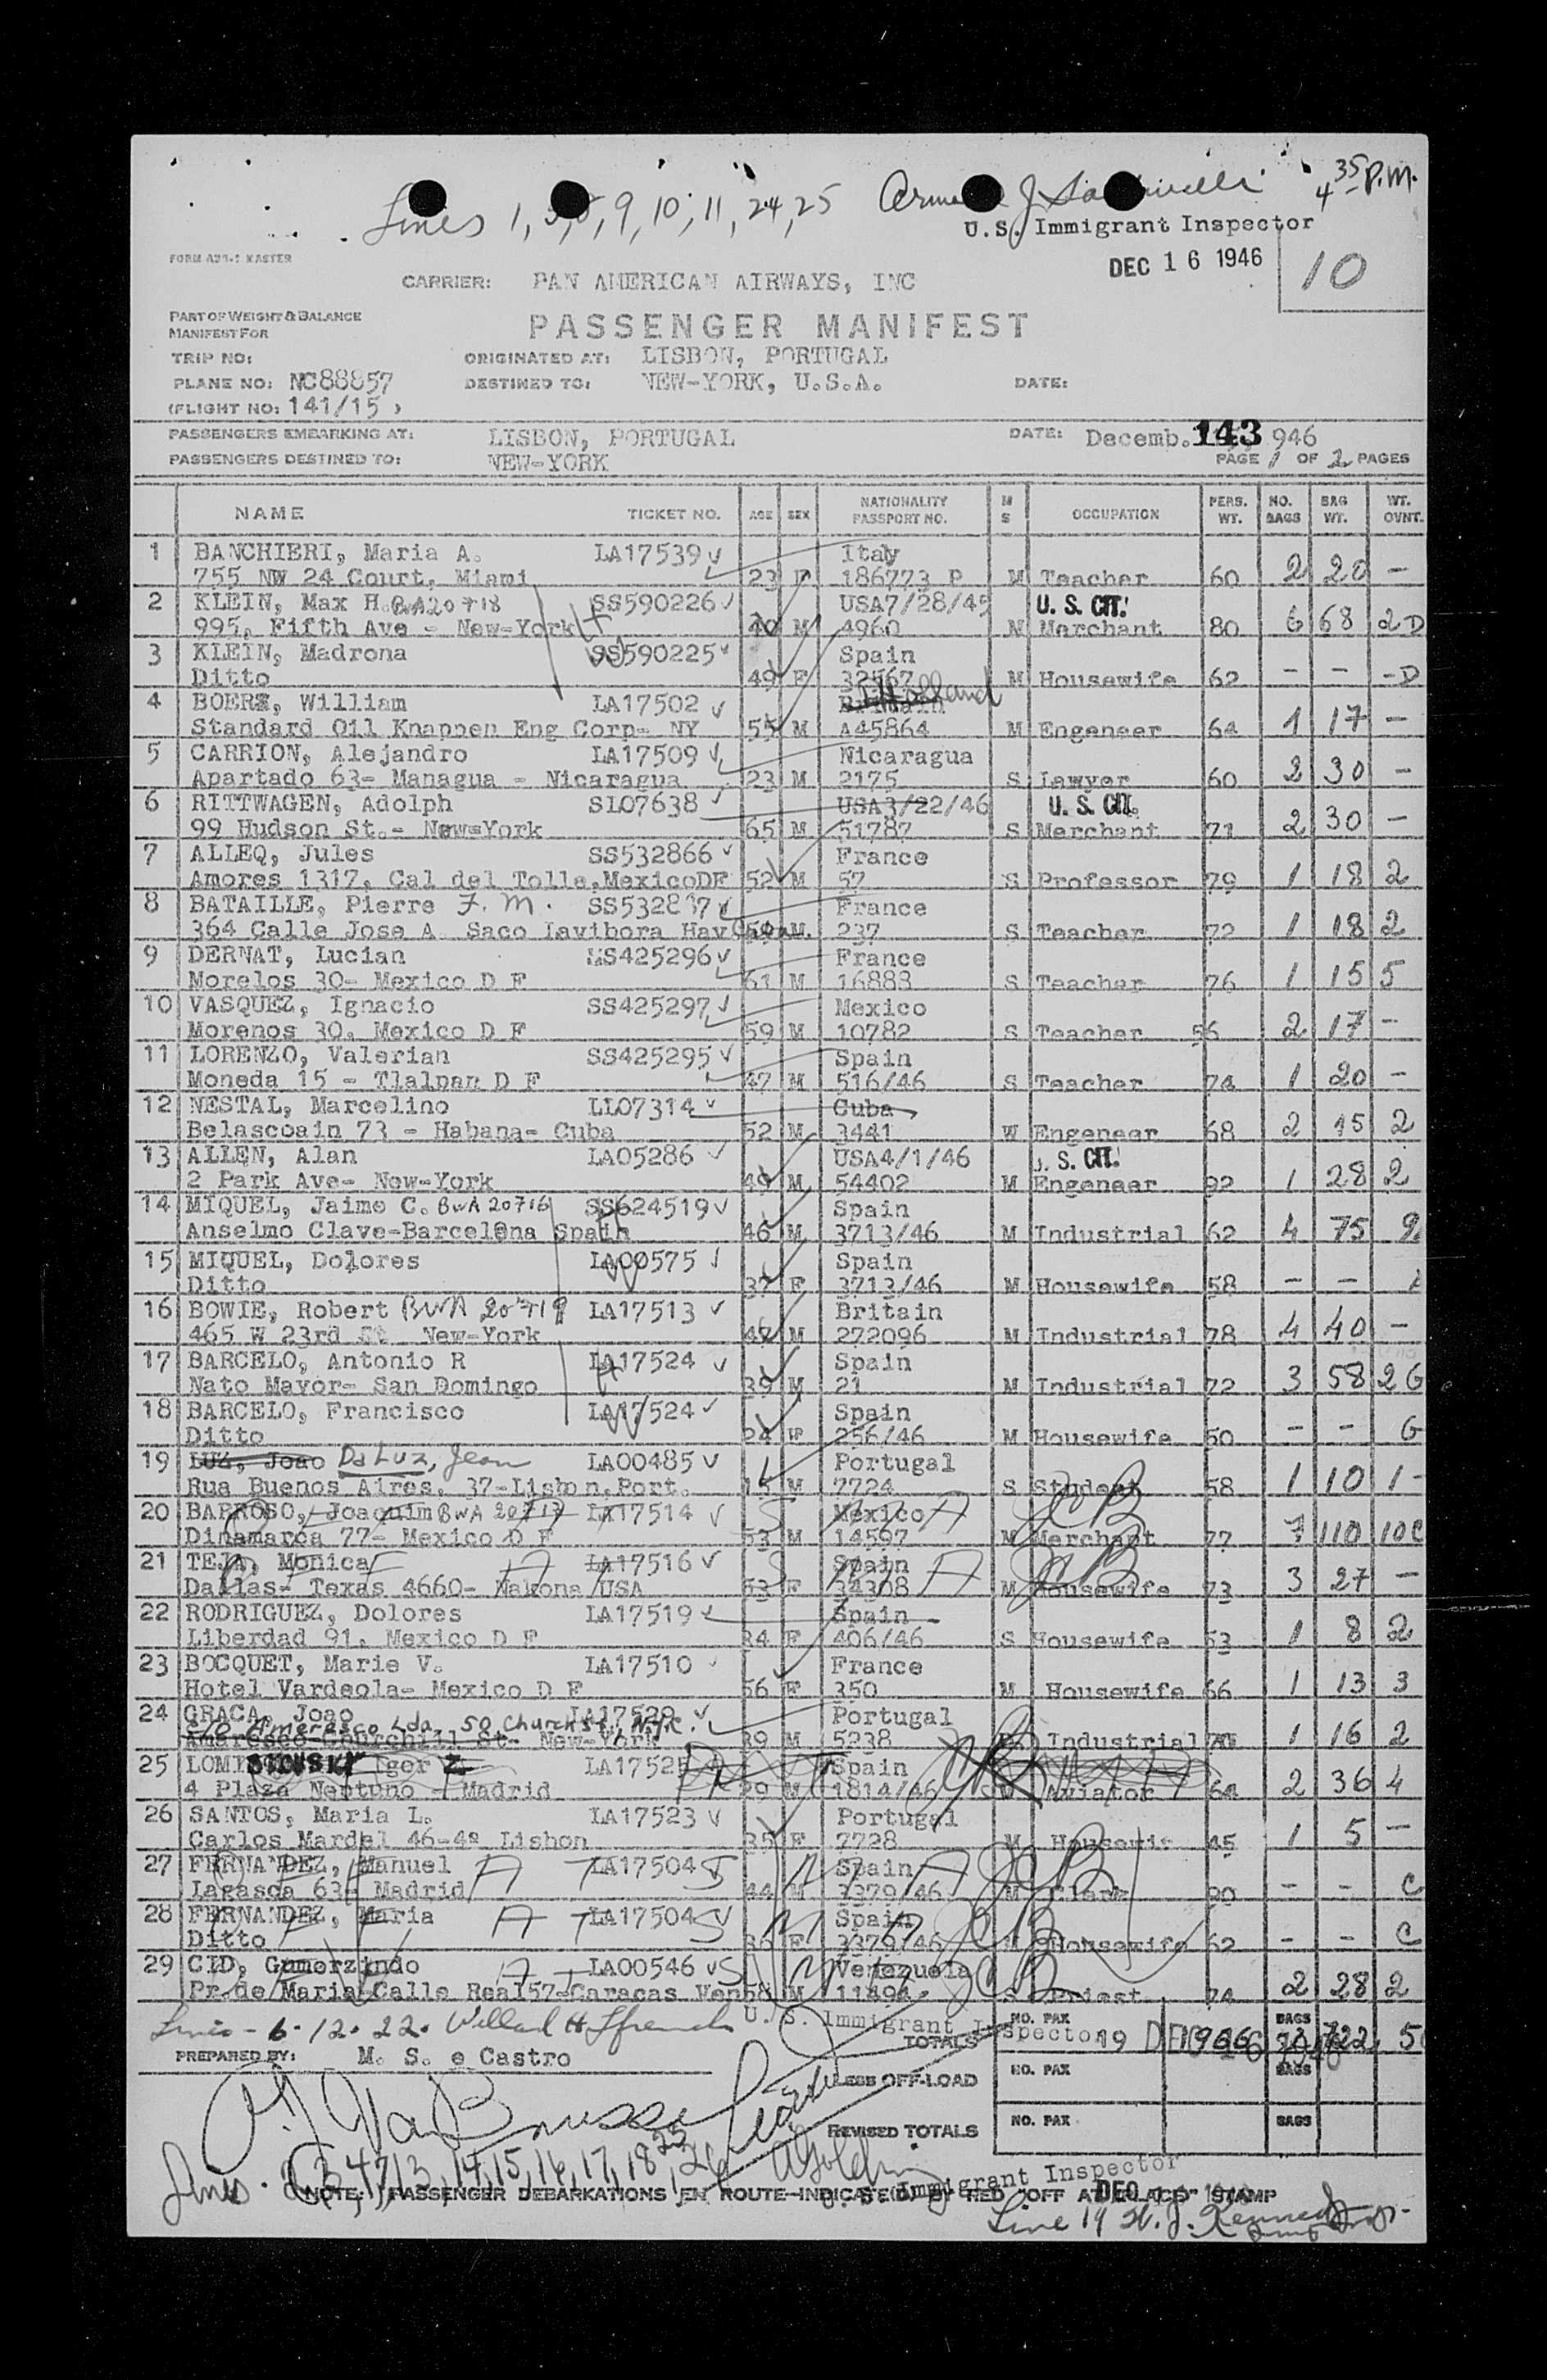 Lines 1, 5, 8, 9, 10, 11, 24, 25 4 35 P.M.
U.S. Immigrant Inspector
DEC 16 1946
10
CARRIER: PAN AMERICAN AIRWAYS, INC
PART OF WEIGHT & BALANCE
MANIFEST FOR
PASSENGER MANIFEST
TRIP NO: ORIGINATED AT: LISBON, PORTUGAL
PLANE NO: NC88857 DESTINED TO: NEW-YORK, U.S.A. DATE:
(FLIGHT NO: 141/15 )
PASSENGERS EMBARKING AT: LISBON, PORTUGAL DATE: Decemb. 143 946
PASSENGERS DESTINED TO: NEW-YORK PAGE 1 OF 2 PAGES
NAME TICKET NO. AGE SEX NATIONALITY PASSPORT NO. M S OCCUPATION PERS. WT. NO. BAGS BAG WT. WT. OVNT.
1 BANCHIERI, Maria A. LA17539 Italy
755 NW 24 Court, Miami 23 F 186773 P M Teacher 60 2 20 -
2 KLEIN, Max H. BWA20718 SS590226 USA7/28/45 U. S. CIT.
995, Fifth Ave - New-York 40 M 4960 M Merchant 80 6 68 2D
3 KLEIN, Madrona SS590225 Spain
Ditto 49 F 32567 M Housewife 62 - - -D
4 BOERS, William LA17502 Holland
Standard Oil Knappen Eng Corp- NY 55 M A45864 M Engeneer 64 1 17 -
5 CARRION, Alejandro LA17509 Nicaragua
Apartado 63- Managua - Nicaragua 23 M 2175 S Lawyer 60 2 30 -
6 RITTWAGEN, Adolph SL07638 USA3/22/46 U. S. CIT.
99 Hudson St.- New-York 65 M 51787 S Merchant 71 2 30 -
7 ALLEQ, Jules SS532866 France
Amores 1317, Cal del Tolle, MexicoDF 52 M 57 S Professor 79 1 18 2
8 BATAILLE, Pierre F. M. SS532867 France
364 Calle Jose A Saco Lavibora Hav M. 237 S Teacher 72 1 18 2
9 DERNAT, Lucian SS425296 France
Morelos 30- Mexico D F 61 M 16883 S Teacher 76 1 15 5
10 VASQUEZ, Ignacio SS425297 Mexico
Morenos 30. Mexico D F 59 M 10782 S Teacher 56 2 17 -
11 LORENZO, Valerian SS425295 Spain
Moneda 15 - Tlalpan D F 47 M 516/46 S Teacher 74 1 20 -
12 NESTAL, Marcelino LL07314 Cuba
Belascoain 73 - Habana- Cuba 52 M 3441 W Engeneer 68 2 15 2
13 ALLEN, Alan LA05286 USA4/1/46 U. S. CIT.
2 Park Ave- New-York 49 M 54402 M Engeneer 92 1 28 2
14 MIQUEL, Jaime C. BWA 20716 SS624519 Spain
Anselmo Clave-Barcelona Spain 46 M 3713/46 M Industrial 62 4 75 9
15 MIQUEL, Dolores LA00575 Spain
Ditto 37 F 3713/46 M Housewife 58 - -
16 BOWIE, Robert BWA 20719 LA17513 Britain
465 W 23rd St New-York 47 M 272096 M Industrial 78 4 40 -
17 BARCELO, Antonio R LA17524 Spain
Nato Mayor- San Domingo 39 M 21 M Industrial 72 3 58 2G
18 BARCELO, Francisco LA17524 Spain
Ditto 24 F 256/46 M Housewife 50 - - G
19 LUZ, Joao Da Luz, Jean LA00485 Portugal
Rua Buenos Aires. 37-Lisbon, Port. 15 M 7724 S Student 58 1 10 1-
20 BARROSO, Joaquim BWA 20717 LA17514 Mexico
Dinamarca 77- Mexico D F 53 M 14597 M Merchant 77 7 110 10C
21 TEJA, Monica LA17516 Spain
Dallas- Texas 4660- Nakona USA 53 F 34308 M Housewife 73 3 27 -
22 RODRIGUEZ, Dolores LA17519 Spain
Liberdad 91, Mexico D F 34 F 406/46 S Housewife 53 1 8 2
23 BOCQUET, Marie V. LA17510 France
Hotel Vardeola- Mexico D F 56 F 350 M Housewife 66 1 13 3
24 GRACA, Joao LA17529 Portugal
c/o Ameresco Lda, 50 Church St., N.Y.C.
Amaresco-Churchill St- New-York 39 M 5238 Industrial 1 16 2
25 Igor Z LA1752 Spain
4 Plaza Neptuno - Madrid 29 M 1814/46 Aviator 64 2 36 4
26 SANTOS, Maria L. LA17523 Portugal
Carlos Mardel 46-4º Lisbon 35 F 7728 M Housewife 45 1 5 -
27 FERNANDEZ, Manuel LA17504 Spain
Lagasca 63- Madrid 44 M 3379/46 M Clerk 90 - - C
28 FERNANDEZ, Maria LA17504 Spain
Ditto 36 F 3379/46 M Housewife 62 - - C
29 CID, Gumerzindo LA00546 Venezuela
Pr. de Maria Calle Real57-Caracas Ven 58 M 11494 S Priest 74 2 28 2
Lines - 6. 12. 22. U. S. Immigrant Inspector NO. PAX BAGS
TOTALS 722
PREPARED BY: M. S. e Castro
LESS OFF-LOAD NO. PAX BAGS
REVISED TOTALS NO. PAX BAGS
Lines 2, 3, 4, 7, 13, 14, 15, 16, 17, 18, 23, 26
U. S. Immigrant Inspector
NOTE: PASSENGER DEBARKATIONS EN ROUTE INDICATED BY RED "OFF AT PLACE" STAMP
Line 19 H. J. Kennedy